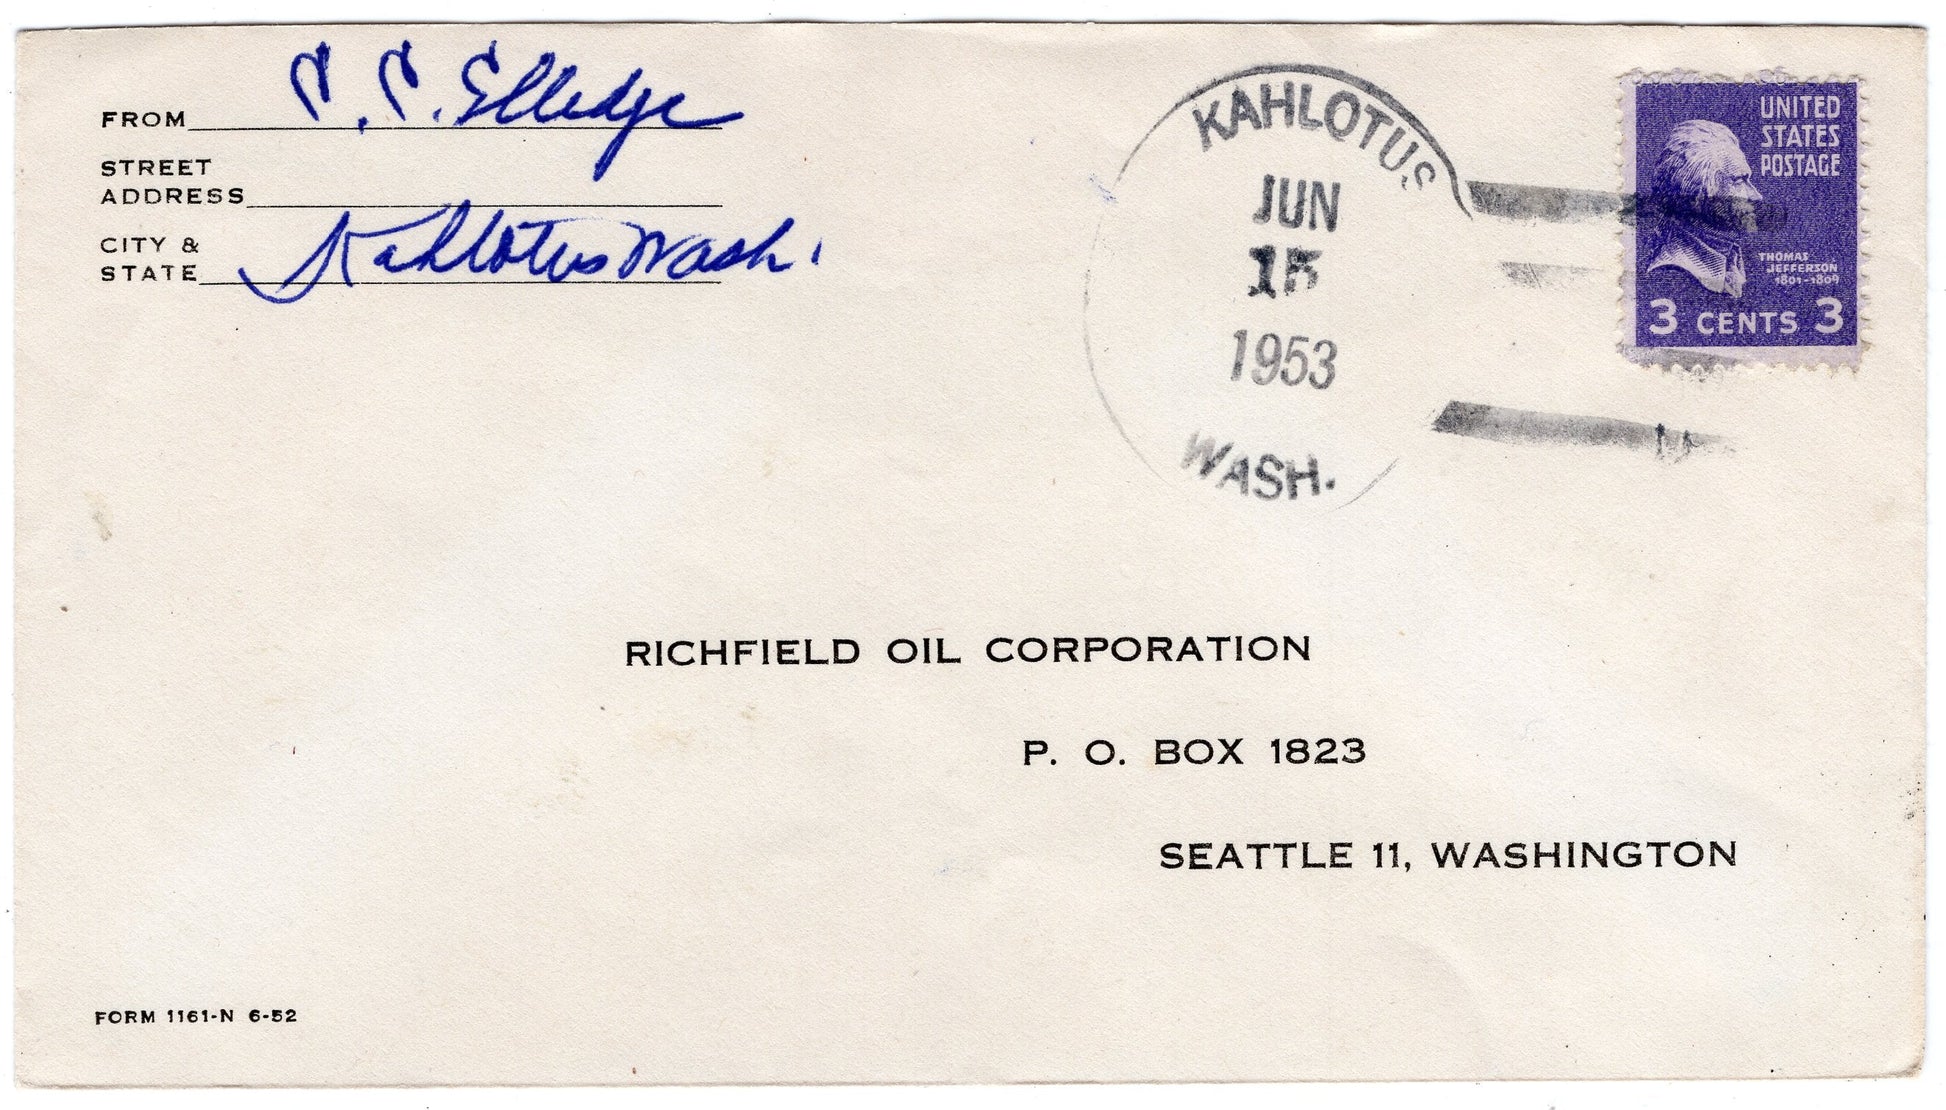 FROM Elledge
STREET
ADDRESS
CITY &
STATE Kahlotus Wash.
KAHLOTUS
JUN
15
1953
WASH.
UNITED
STATES
POSTAGE
THOMAS
JEFFERSON
1801-1809
3 CENTS 3
RICHFIELD OIL CORPORATION
P. O. BOX 1823
SEATTLE 11, WASHINGTON
FORM 1161-N 6-52